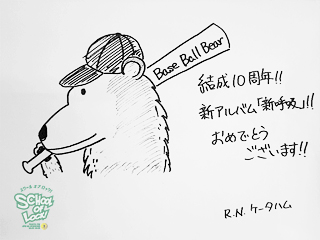 Base Ball Bear
結成10周年!!
新アルバム「新呼吸」!!
おめでとう
ございます!!
R.N. ケータハム
スクール オブ ロック!
SCHOOL
OF
LOCK!